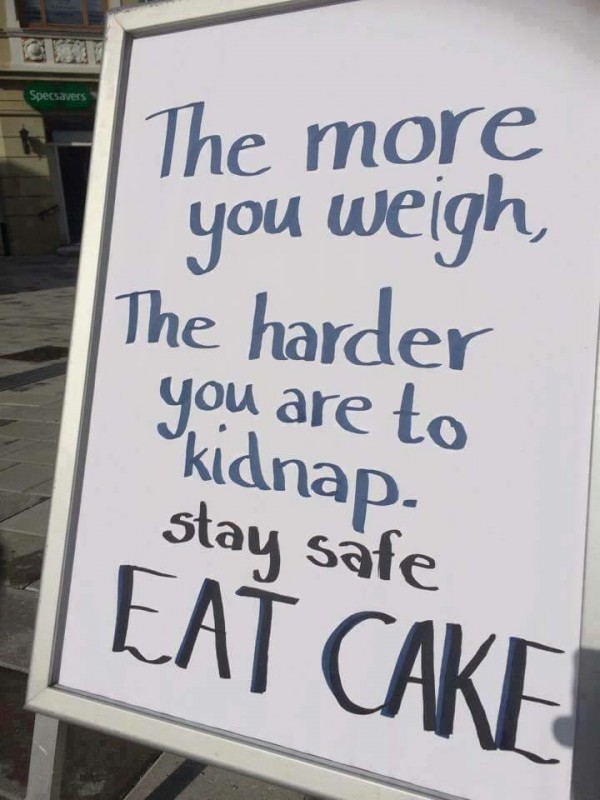 Specsavers
The more
you weigh,
The harder
you are to
kidnap.
stay safe
EAT CAKE